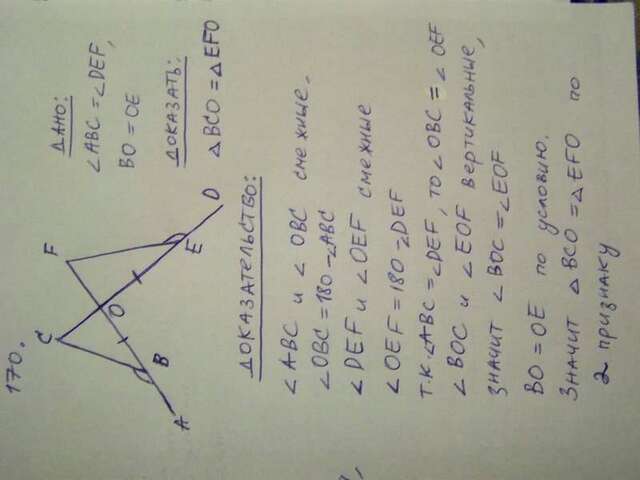 170.
C
F
O
B
E
A
D
ДАНО:
∠ABC = ∠DEF,
BO = OE
ДОКАЗАТЬ:
△ BCO = △ EFO
ДОКАЗАТЕЛЬСТВО:
∠ ABC и ∠ OBC смежные.
∠OBC = 180 - ∠ABC
∠ DEF и ∠ OEF смежные
∠ OEF = 180 - ∠DEF
Т.К. ∠ABC = ∠DEF, ТО ∠ OBC = ∠ OEF
∠ BOC и ∠ EOF вертикальные,
значит ∠ BOC = ∠EOF
BO = OE по условию.
Значит △ BCO = △ EFO по
2 признаку